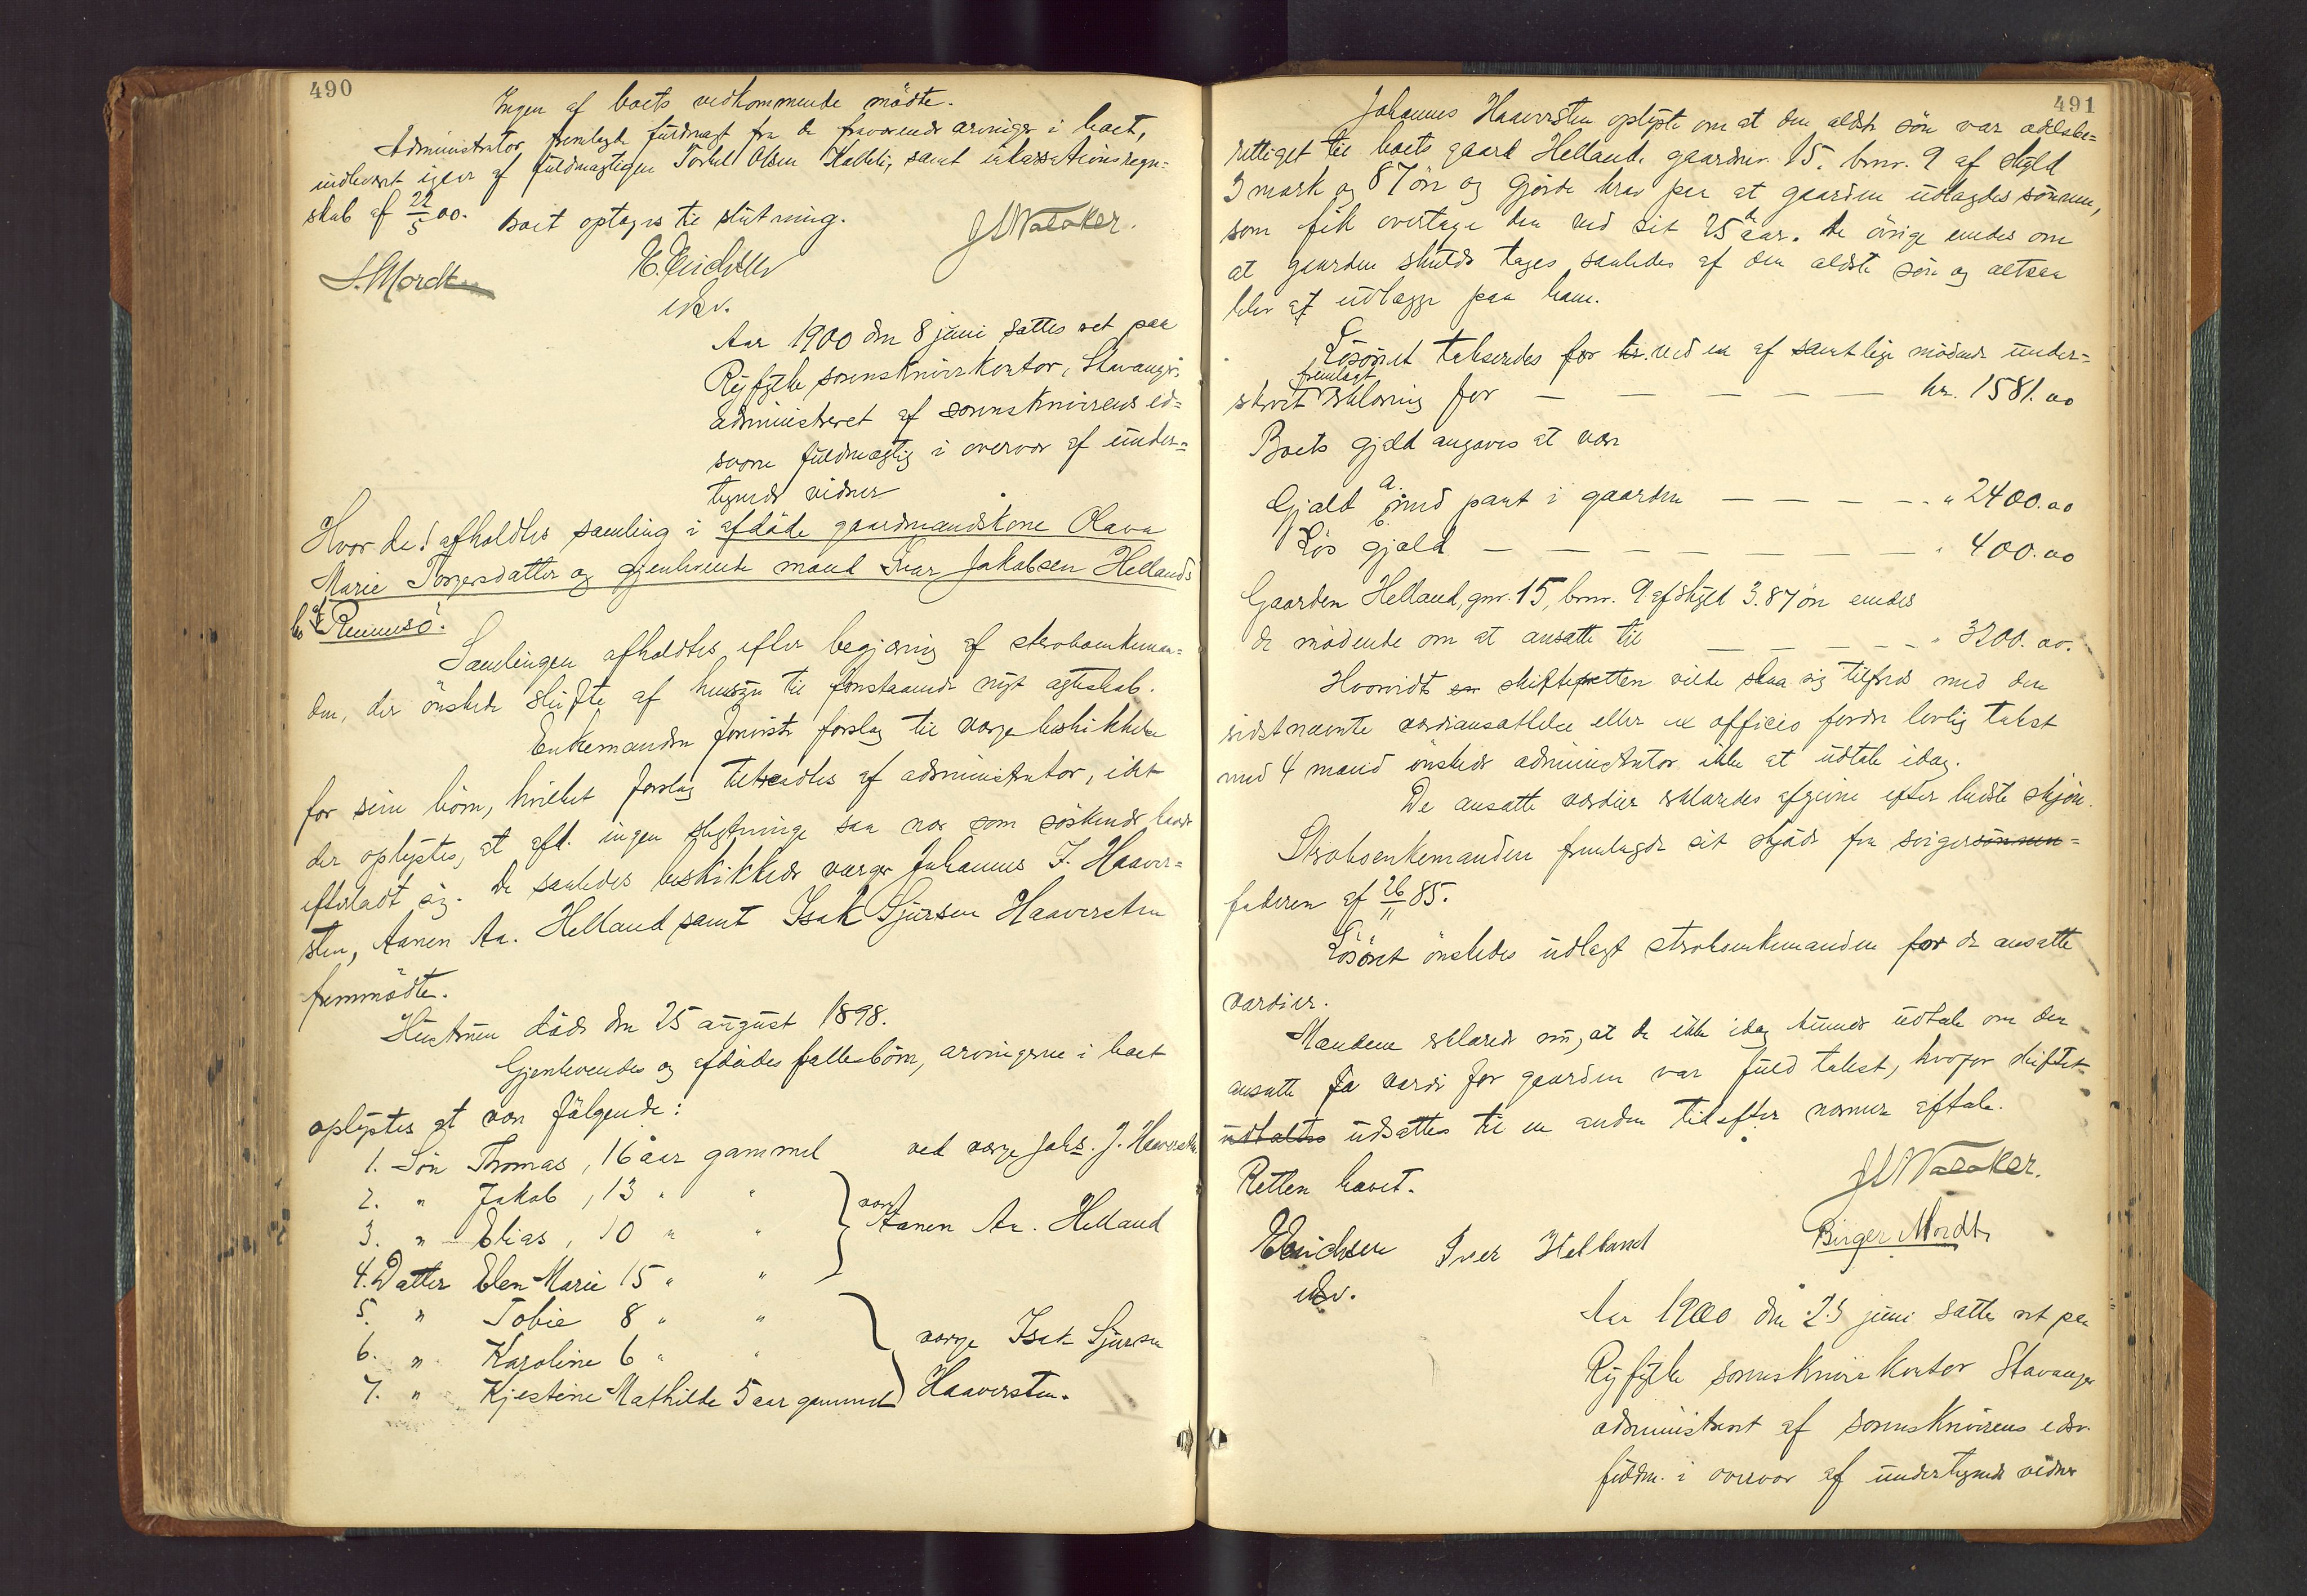 490
Ingen af boets vedkommende mödte.
Administrator fremlagde fuldmagt fra de fraværende arvinger i boet,
indleveret igjen af fuldmægtigen Torkel Olsen samt inkassationsregn-
skab af 22/5 00. Boet optages til slutning.
J S Waaker.
S. Mordt
E. Erichsen
edsv.
Aar 1900 den 8 juni sattes ret paa
Ryfylke sorenskriverkontor, Stavanger,
administreret af sorenskriverens ed-
svorne fuldmægtig i overvær af under-
tegnede vidner
Hvor da: afholdtes samling i afdöde gaardmandskone Olava
Marie Torgersdatter og gjenlevende mand Ivar Jakobsen Hellands
bo af Rennesö.
Samlingen afholdtes efter begjæring af sterboenkeman-
den, der önskede skifte af hensyn til forestaaende nyt ægteskab.
Enkemanden forviste forslag til værge beskikkelse
for sine börn, hvilket forslag tiltraadtes af administrator, idet
der oplystes, at afd. ingen slegtninge saa nær som söskende havde
efterladt sig. De saaledes beskikkede værger Johannes J. Haaver-
sten, Aanen Aa. Helland samt Isak Sjursen Haaversten
fremmödte.
Hustruen döde den 25 august 1898.
Gjenlevendes og afdödes fællesbörn, arvingerne i boet
oplystes at være fölgende:
1. Sön Thomas, 16 aar gammel ved værge Johs. J. Haaversten.
2. " Jakob, 13 " "
3. " Elias, 10 " " værge Aanen Aa. Helland
4. Datter Elen Marie 15 " "
5. " Tobie 8 " "
6. " Karoline 6 " " værge Isak Sjursen
7. " Kjestine Mathilde 5 aar gammel Haaversten.
491
Johannes Haaversten oplyste om at den ældste sön var odelsbe-
rettiget til boets gaard Helland gaardnr. 15, brnr. 9 af skyld
3 mark og 87 öre og gjorde krav paa at gaarden udlagdes sönnen,
som fik overtage den ved sit 25de aar. De övrige enedes om
at gaarden skulde tages saaledes af den ældste sön og altsaa
blev at udlægge paa ham.
Lösöret takseredes for kr. ved en af samtlige mödende under-
skrevet fremlagt erklæring for — — — — — kr. 1581.00
Boets gjæld angaves at være
Gjæld a. med pant i gaarden — — — — " 2400.00
b. Lös gjæld — — — — — — — " 400.00
Gaarden Helland, gnr. 15, brnr. 9 af skyld 3.87 öre enedes
de mödende om at ansætte til — — — — — " 3200.00.
Hvorvidt en skifteretten vilde slaa sig tilfreds med den
sidstnævnte værdiansættelse eller ex officio fordre lovlig takst
med 4 mænd önskede administrator ikke at udtale idag.
De ansatte værdier erklæredes afgivne efter bedste skjön.
Sterboenkemanden fremlagde sit skjöde fra svigersönnen-
faderen af 26/11 85.
Lösöret önskedes udlagt sterboenkemanden for de ansatte
værdier.
Mændene erklærede nu, at de ikke idag kunde udtale om den
ansatte værdi for gaarden var fuld takst, hvorfor skiftet
udtaltes udsættes til en anden tid efter nærmere aftale.
Retten hævet.
J S Waaker.
E Erichsen Iver Helland Birger Mordt
edsv.
Aar 1900 den 25 juni sattes ret paa
Ryfylke sorenskriverkontor Stavanger
administreret af sorenskriverens edsv.
fuldm. i overvær af undertegnede vidner